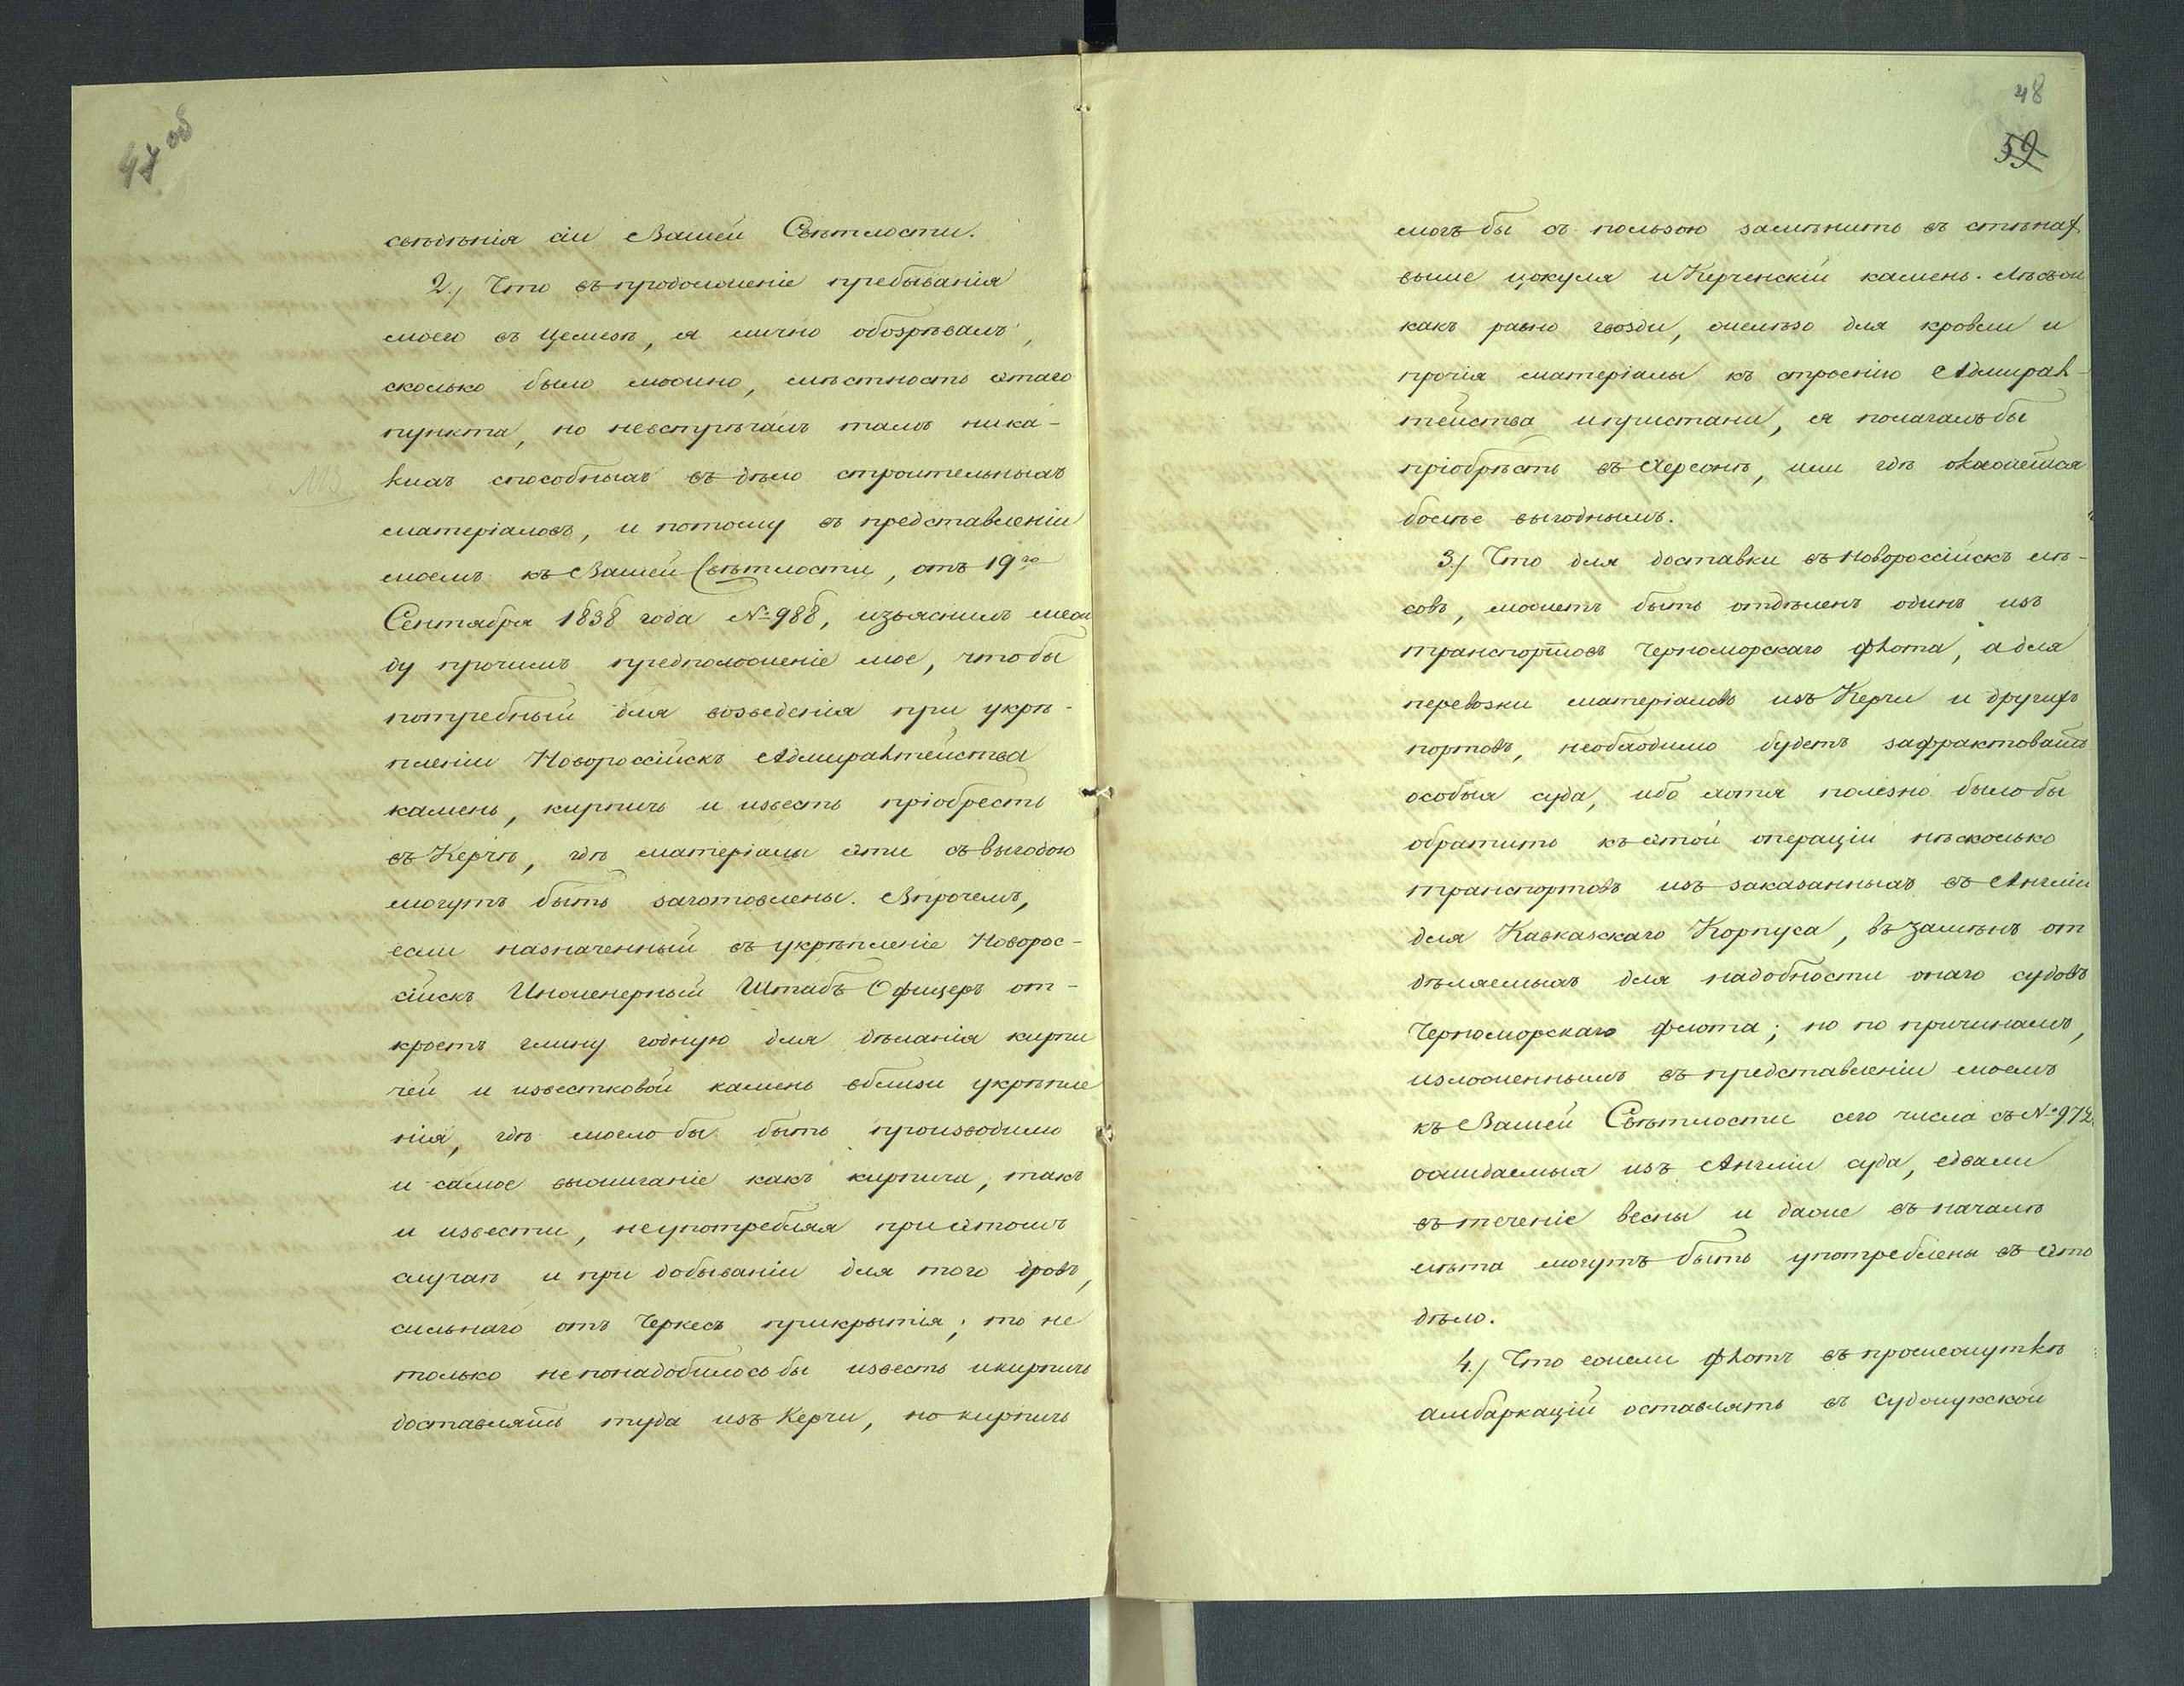 47 об
свѣдѣнія сіи Вашей Свѣтлости.
2.) Что въ продолженіе пребыванія
моего въ Цемезѣ, я лично обозрѣвалъ,
сколько было можно, мѣстность этаго
пункта, но невстрѣчалъ тамъ ника-
кихъ способныхъ въ дѣло строительныхъ
матеріаловъ, и потому въ представленіи
моемъ къ Вашей Свѣтлости, отъ 19го
Сентября 1838 года №988, изъяснилъ меж
ду прочимъ предположеніе мое, чтобы
потребный для возведенія при укрѣ-
пленіи Новороссійскъ Адмиралтейства
камень, кирпичъ и известь пріобрѣсть
въ Керчѣ, гдѣ матеріалы эти съ выгодою
могутъ быть заготовлены. Впрочемъ,
если назначенный въ укрѣпленіе Новорос-
сійскъ Инженерный Штабъ Офицеръ от-
кроетъ глину годную для дѣланія кирпи
чей и известковой камень вблизи укрѣпле
нія, гдѣ могло бы быть производимо
и самое выжиганіе какъ кирпича, такъ
и извести, неупотребляя при этомъ
случаѣ и при добываніи для того дровъ,
сильнаго отъ Черкесъ прикрытія; то не
только непонадобилось бы известь и кирпичъ
доставлять туда изъ Керчи, но кирпичъ
48
59
могъ бы съ пользою замѣнить въ стѣнах
выше цокуля и Керченскій камень. Лѣсъ
какъ равно гвозди, желѣзо для кровли и
прочія матеріалы къ строенію Адмирал-
тейства и пристани, я полагалъ бы
пріобрѣсть въ Херсонѣ, или гдѣ окажется
болѣе выгоднымъ.
3.) Что для доставки въ Новороссійскъ лѣ-
совъ, можетъ быть отдѣленъ одинъ изъ
транспортовъ Черноморскаго флота, а для
перевозки матеріаловъ изъ Керчи и другихъ
портовъ, необходимо будетъ зафрактовать
особыя суда, ибо хотя полезно было бы
обратить къ этой операціи нѣсколько
транспортовъ изъ заказанныхъ въ Англіи
для Кавказскаго Корпуса, въ замѣнъ от
дѣляемыхъ для надобности онаго судовъ
Черноморскаго флота; но по причинамъ,
изложеннымъ въ представленіи моемъ
къ Вашей Свѣтлости сего числа съ №972
ожидаемыя изъ Англіи суда, едвали
въ теченіе весны и даже въ началѣ
лѣта могутъ быть употреблены въ это
дѣло.
4.) Что ежели флотъ въ промежуткѣ
амбаркацій оставлять въ Суджукской